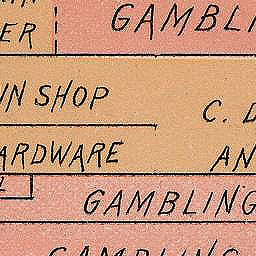 GAMBLI
ER
N SHOP
C. D
ARDWARE
AN
GAMBLING
GAMBLING